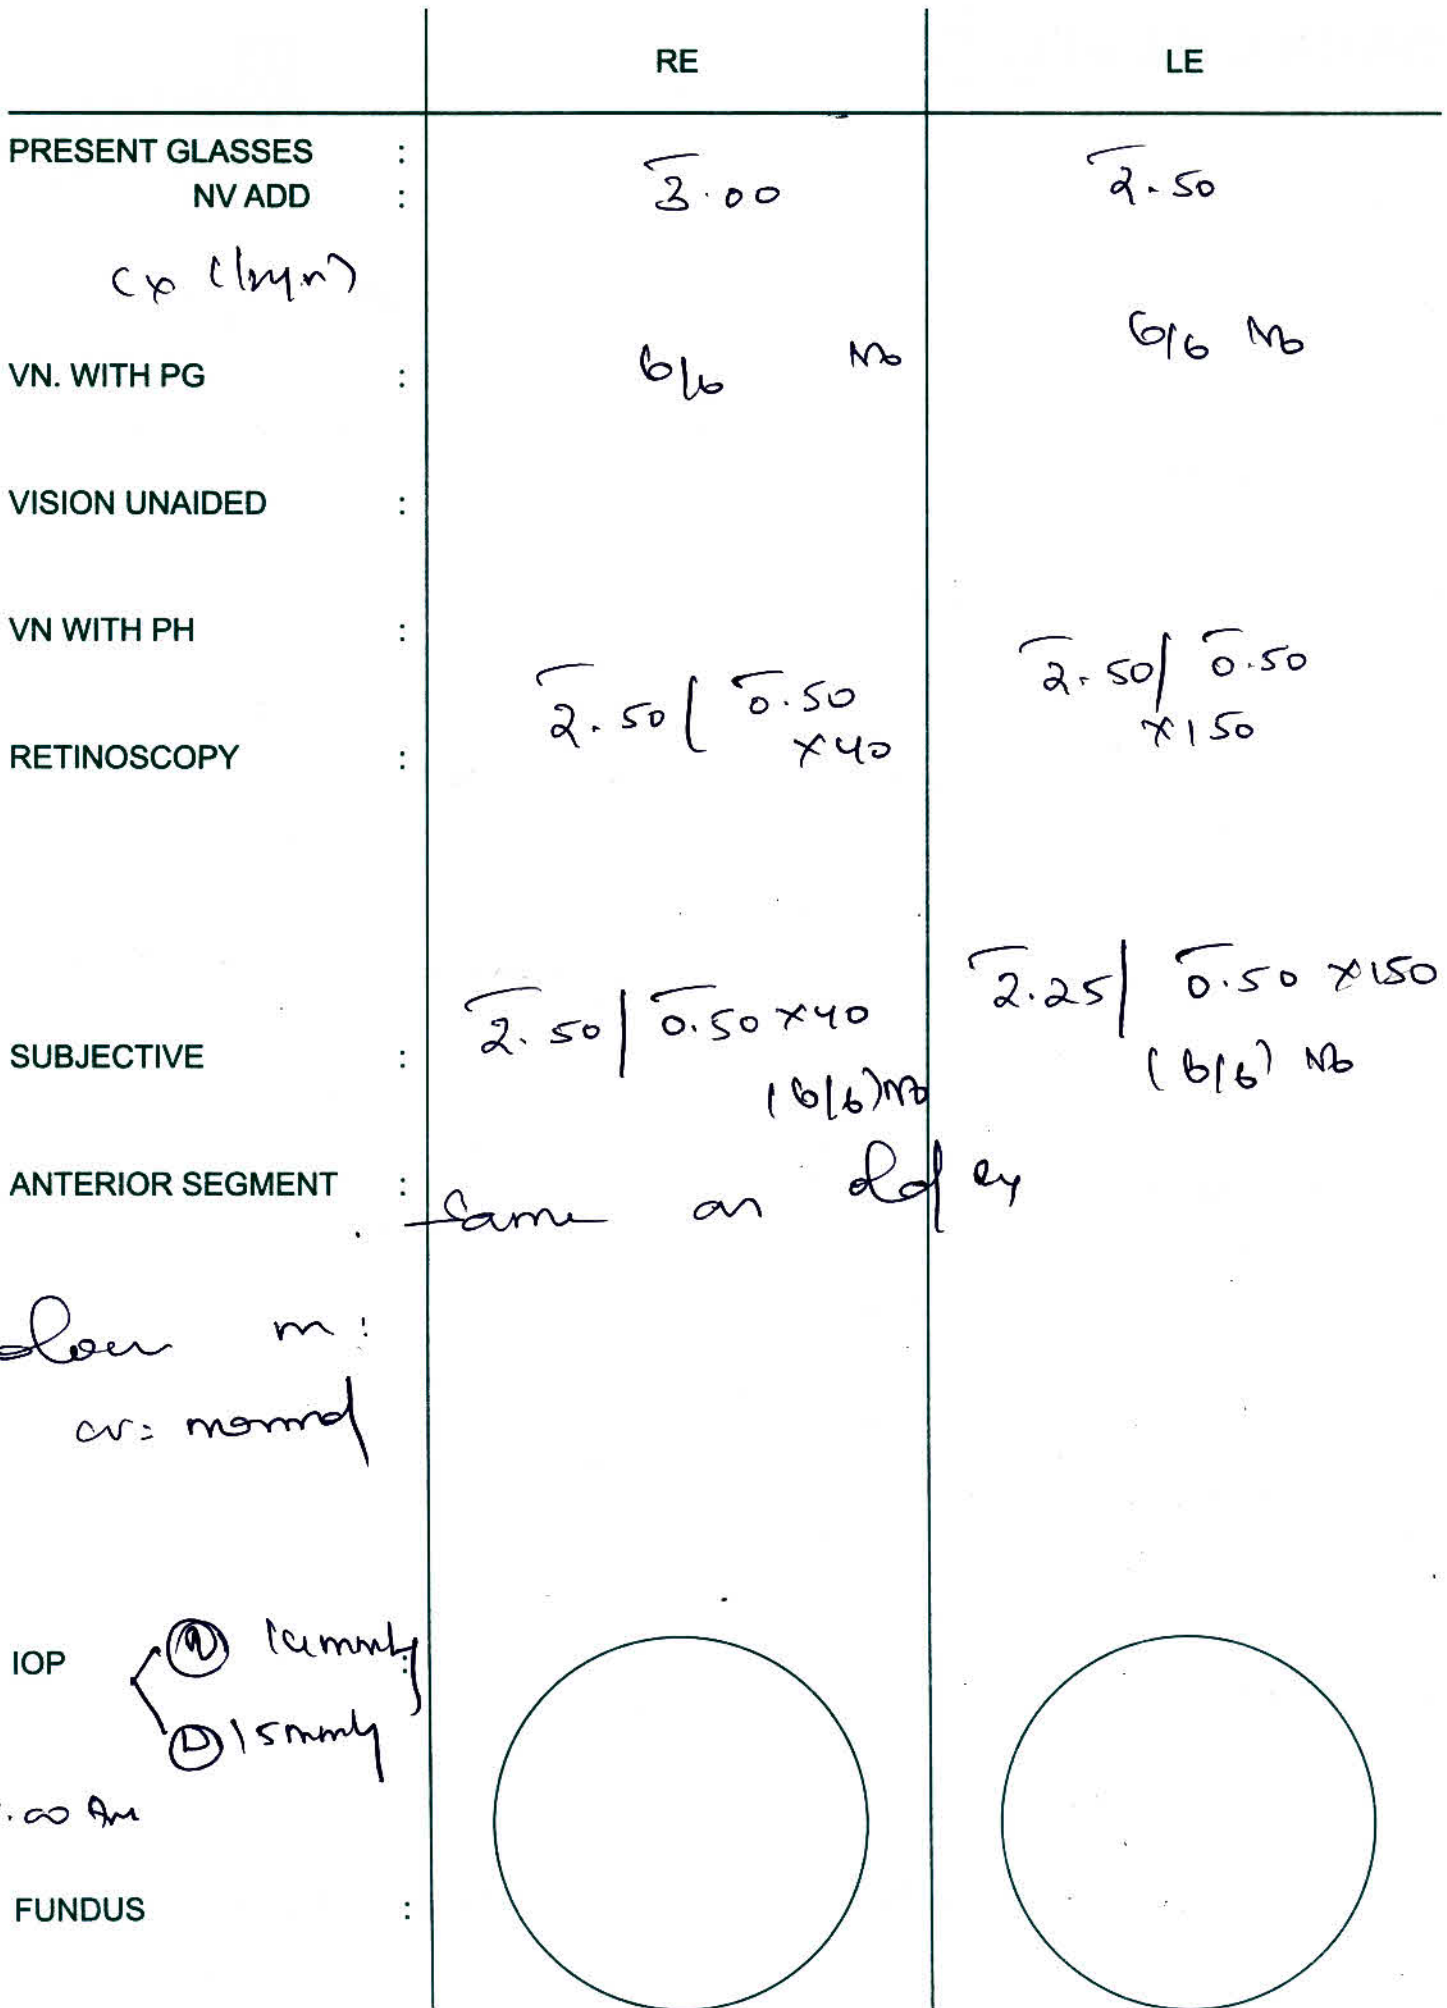 RE LE
PRESENT GLASSES :
NV ADD : 3.00 2.50
VN. WITH PG : 6/6 N6 6/6 N6
VISION UNAIDED :
VN WITH PH :
RETINOSCOPY : 2.50 / 0.50 x40 2.50 / 0.50 x150
SUBJECTIVE : 2.50 | 0.50 x40 2.25 | 0.50 x150
(6/6) N6 (6/6) N6
ANTERIOR SEGMENT : Same as
cv: normal
IOP :
15mmHg
.00 Am
FUNDUS :